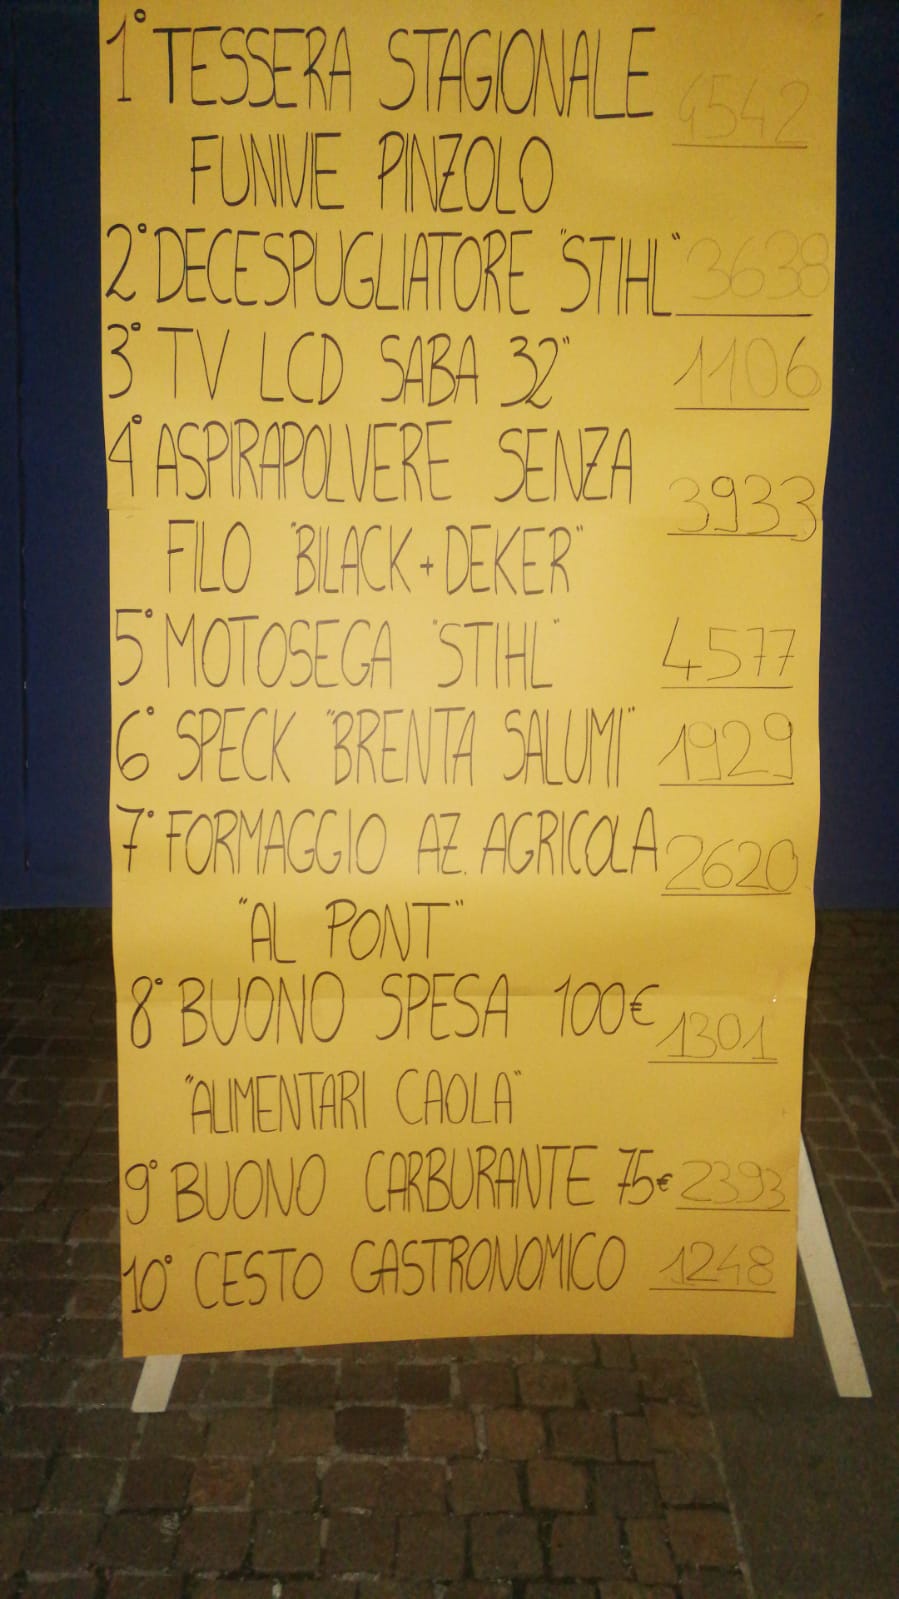 1° TESSERA STAGIONALE 4542
FUNIVIE PINZOLO
2° DECESPUGLIATORE "STIHL" 3638
3° TV LCD SABA 32" 1106
4° ASPIRAPOLVERE SENZA 3933
FILO "BILACK+DEKER"
5° MOTOSEGA "STIHL" 4577
6° SPECK "BRENTA SALUMI" 1929
7° FORMAGGIO AZ. AGRICOLA 2620
"AL PONT"
8° BUONO SPESA 100€ 1301
"ALIMENTARI CAOLA"
9° BUONO CARBURANTE 75€ 2393
10° CESTO GASTRONOMICO 1248